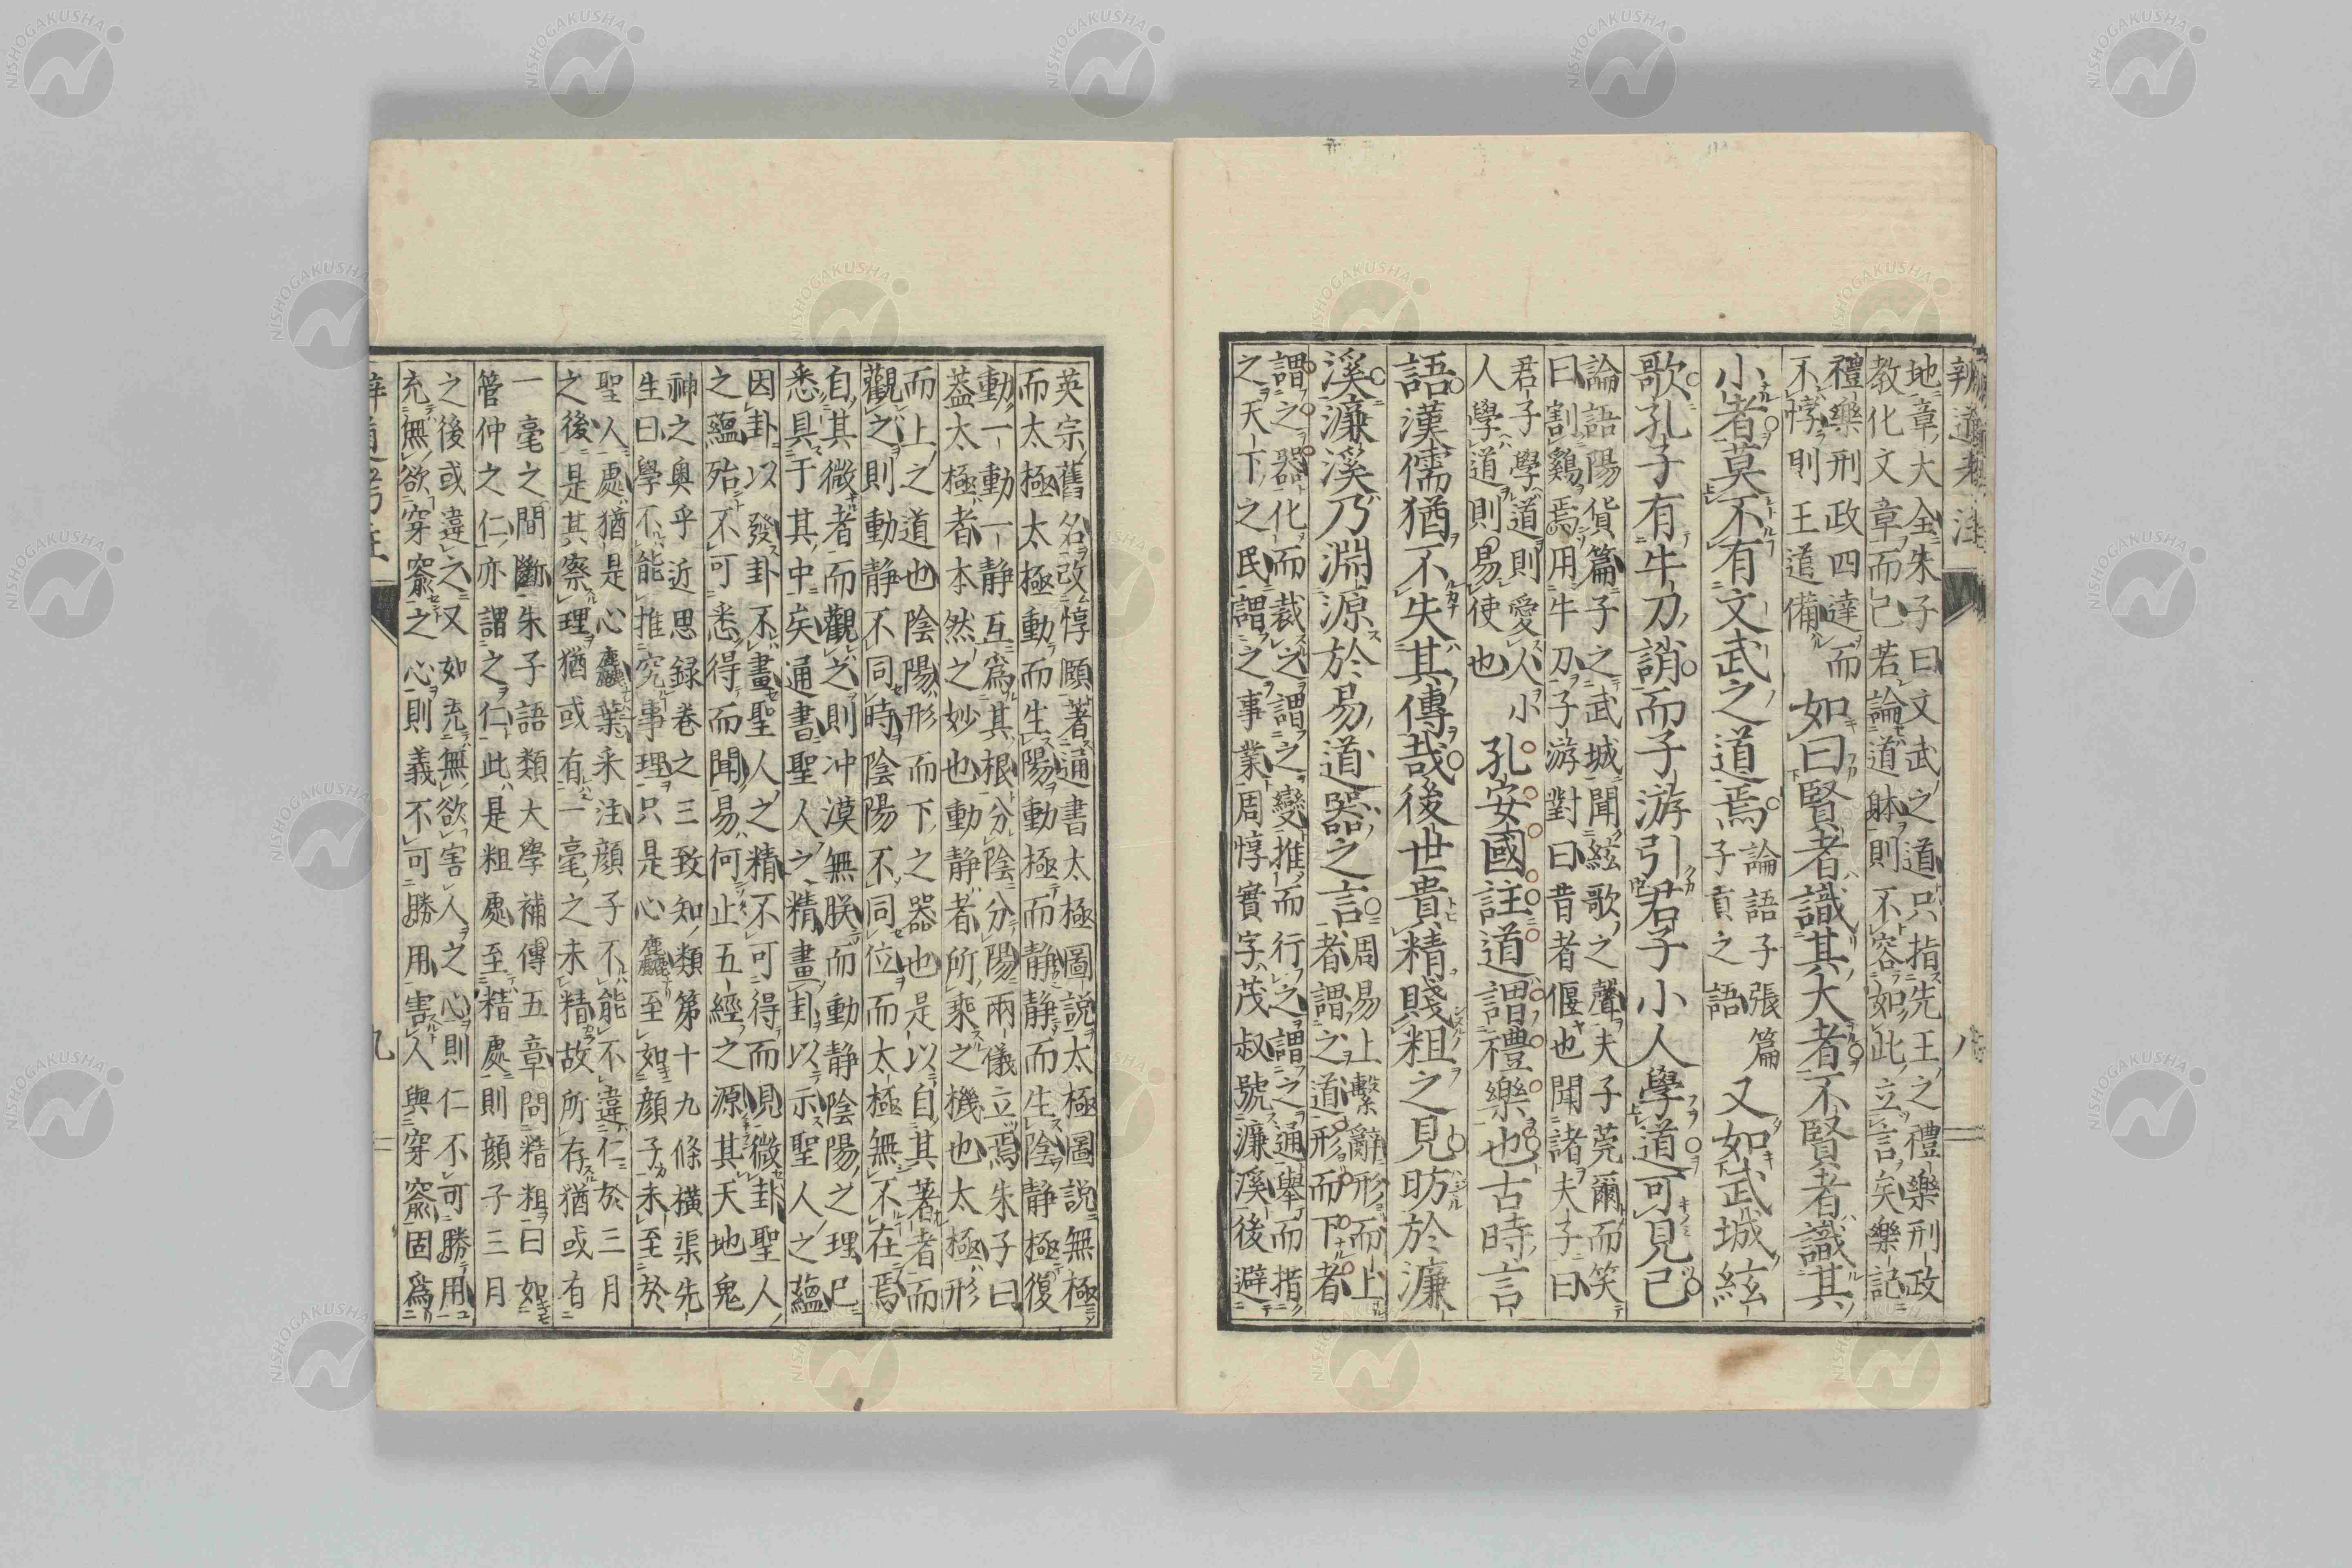 辨道考注
八
地章大全朱子曰文武之道只指先王之禮樂刑政
教化文章而已若論道躰則不容如此立言矣樂記
禮樂刑政四達而
不悖則王道備
如曰賢者識其大者不賢者識其
小者莫不有文武之道焉
論語子張篇
子貢之語
又如武城絃
歌孔子有牛刀誚而子游引君子小人學道可見已
論語陽貨篇子之武城聞絃歌之聲夫子莞爾而笑
曰割鷄焉用牛刀子游對曰昔者偃也聞諸夫子曰
君子學道則愛人小
人學道則易使也
孔安國註道謂禮樂也古時言
語漢儒猶不失其傳哉後世貴精賤粗之見昉於濂
溪濂溪乃淵源於易道器之言
周易上繫辭形而上
者謂之道形而下者
謂之器化而裁之謂之變推而行之謂之通舉而措
之天下之民謂之事業周惇實字茂叔號濂溪後避
英宗舊名改惇頤著通書太極圖説太極圖説無極
而太極太極動而生陽動極而静静而生陰静極復
動一動一静互爲其根分陰分陽兩儀立焉朱子曰
葢太極者本然之妙也動静者所乘之機也太極形
而上之道也陰陽形而下之器也是以自其著者而
觀之則動静不同時陰陽不同位而太極無不在焉
自其微者而觀之則冲漠無朕而動静陰陽之理已
悉具于其中矣通書聖人之精畫卦以示聖人之蘊
因卦以發卦不畫聖人之精不可得而見微卦聖人
之蘊殆不可悉得而聞易何止五經之源其天地鬼
神之奧乎近思録卷之三致知類第十九條横渠先
生曰學不能推究事理只是心麤至如顔子未至於
聖人處猶是心麤葉采注顔子不能不違仁於三月
之後是其察理猶或有一毫之未精故所存猶或有
一毫之間斷朱子語類大學補傳五章問精粗曰如
管仲之仁亦謂之仁此是粗處至精處則顔子三月
之後或違之又如充無欲害人之心則仁不可勝用
充無欲穿窬之心則義不可勝用害人與穿窬固爲
辨道考注
九